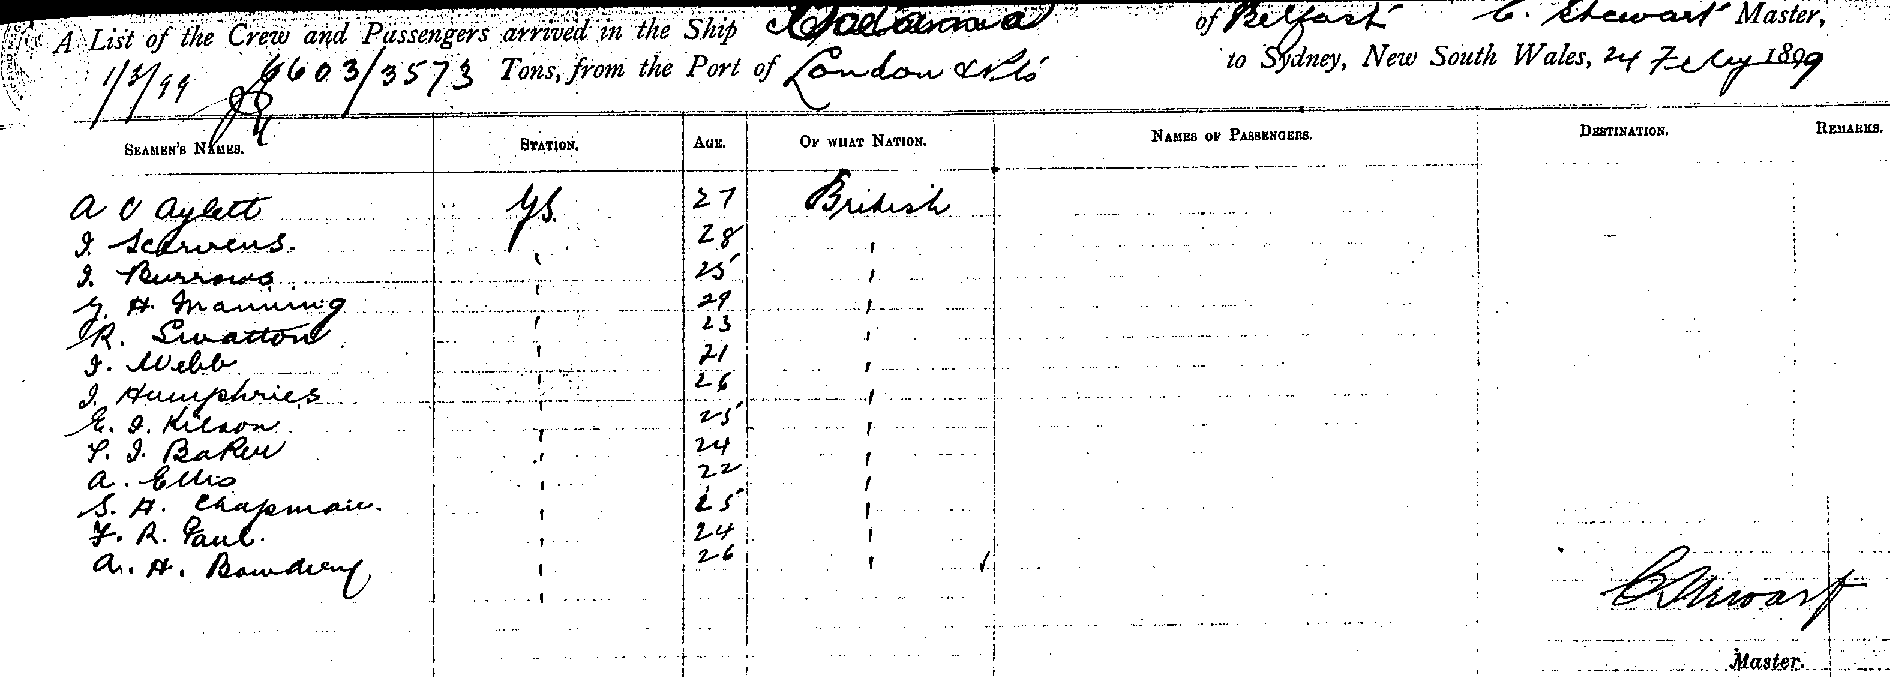 A List of the Crew and Passengers arrived in the Ship of Belfast C. Stewart Master,
1/3/99 6603/3573 Tons, from the Port of London & Pts to Sydney, New South Wales, 24 Feby 1899
SEAMEN'S NAMES. STATION. AGE. OF WHAT NATION. NAMES OF PASSENGERS. DESTINATION. REMARKS.
A Aylett GS. 27 British
28
Burrows 25
H. Manning 29
R. Swatton 23
Webb 21
Humphries 26
E. Kilson 25
Baker 24
A. Ellis 22
S. H. Chapman. 25
F. R. Paul. 24
A. H. 26
C Stewart
Master.